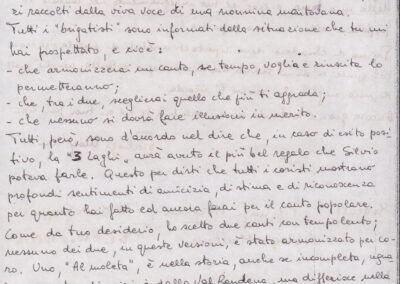 zi raccolti dalla viva voce di una nonnina mantovana.
Tutti i "brigatisti" sono informati della situazione che tu mi
hai prospettato, e cioè:
- che armonizzerai un canto, se tempo, voglia e riuscita lo
permetteranno;
- che, tra i due, sceglierai quello che più ti aggrada;
- che nessuno si dovrà fare illusioni in merito.
Tutti, però, sono d'accordo nel dire che, in caso di esito posi
tivo, la "3 laghi" avrà avuto il più bel regalo che Silvio
poteva farle. Questo per dirti che tutti i coristi mostrano
profondi sentimenti di amicizia, di stima e di riconoscenza
per quanto hai fatto ed ancora farai per il canto popolare.
Come da tuo desiderio, ho scelto due canti con tempo lento;
nessuno dei due, in queste versioni, è stato armonizzato per co-
ro. Uno, "Al moleta", è nella storia, anche se incompleta, ugua
è dalla Val Rendena, ma differisce nella